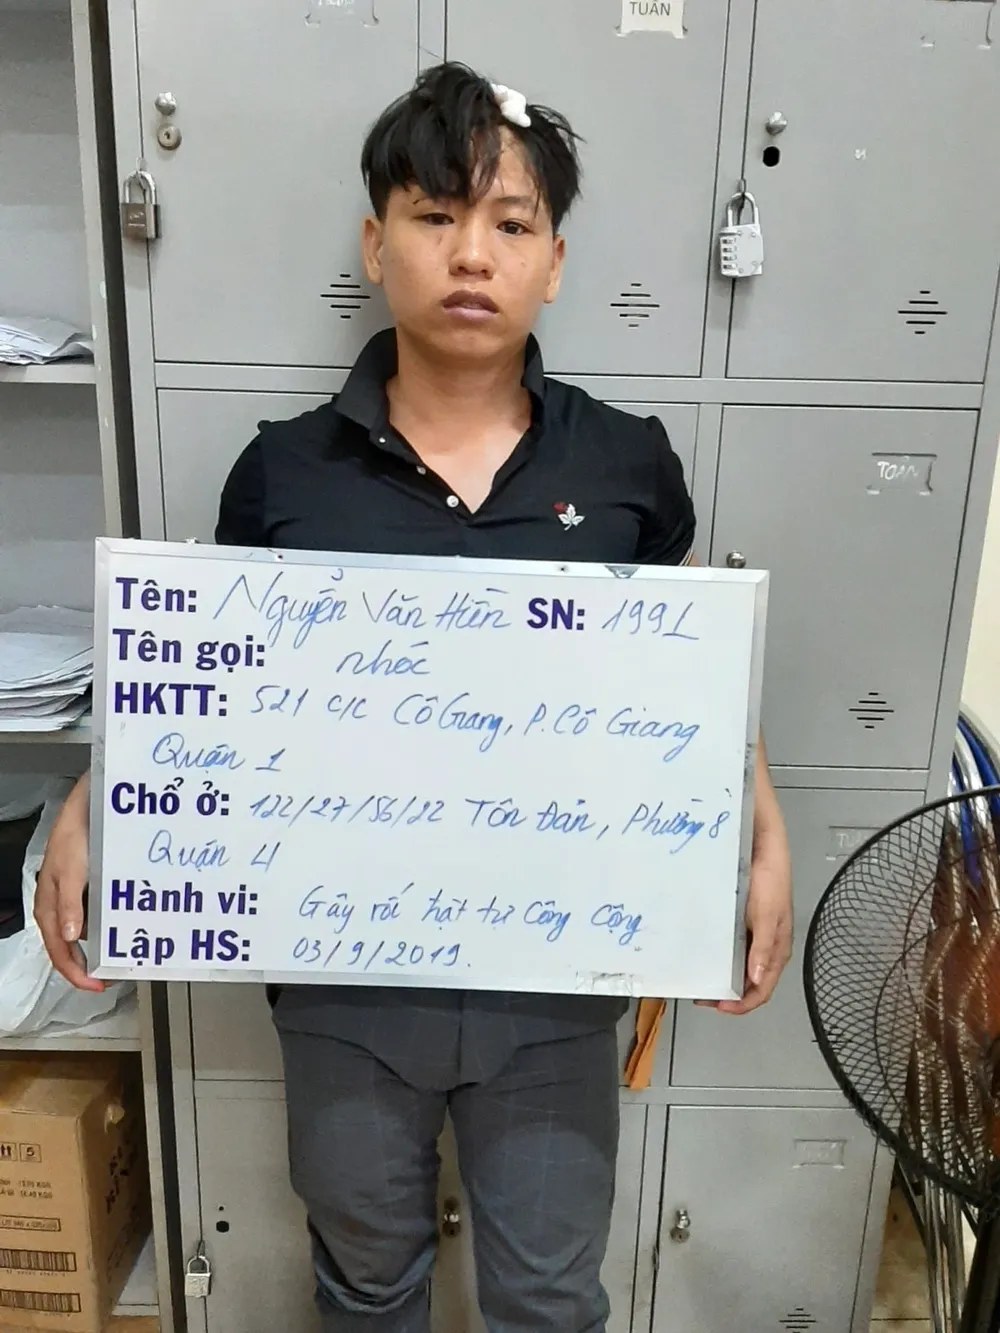 TUẤN
TOÀN
Tên: Nguyễn Văn Hiền SN: 1991
Tên gọi: nhóc
HKTT: 521 c/c Cô Giang, P. Cô Giang
Quận 1
Chổ ở: 122/27/56/22 Tôn Đản, Phường 8
Quận 4
Hành vi: Gây rối trật tự Công Cộng
Lập HS: 03/9/2019.
5